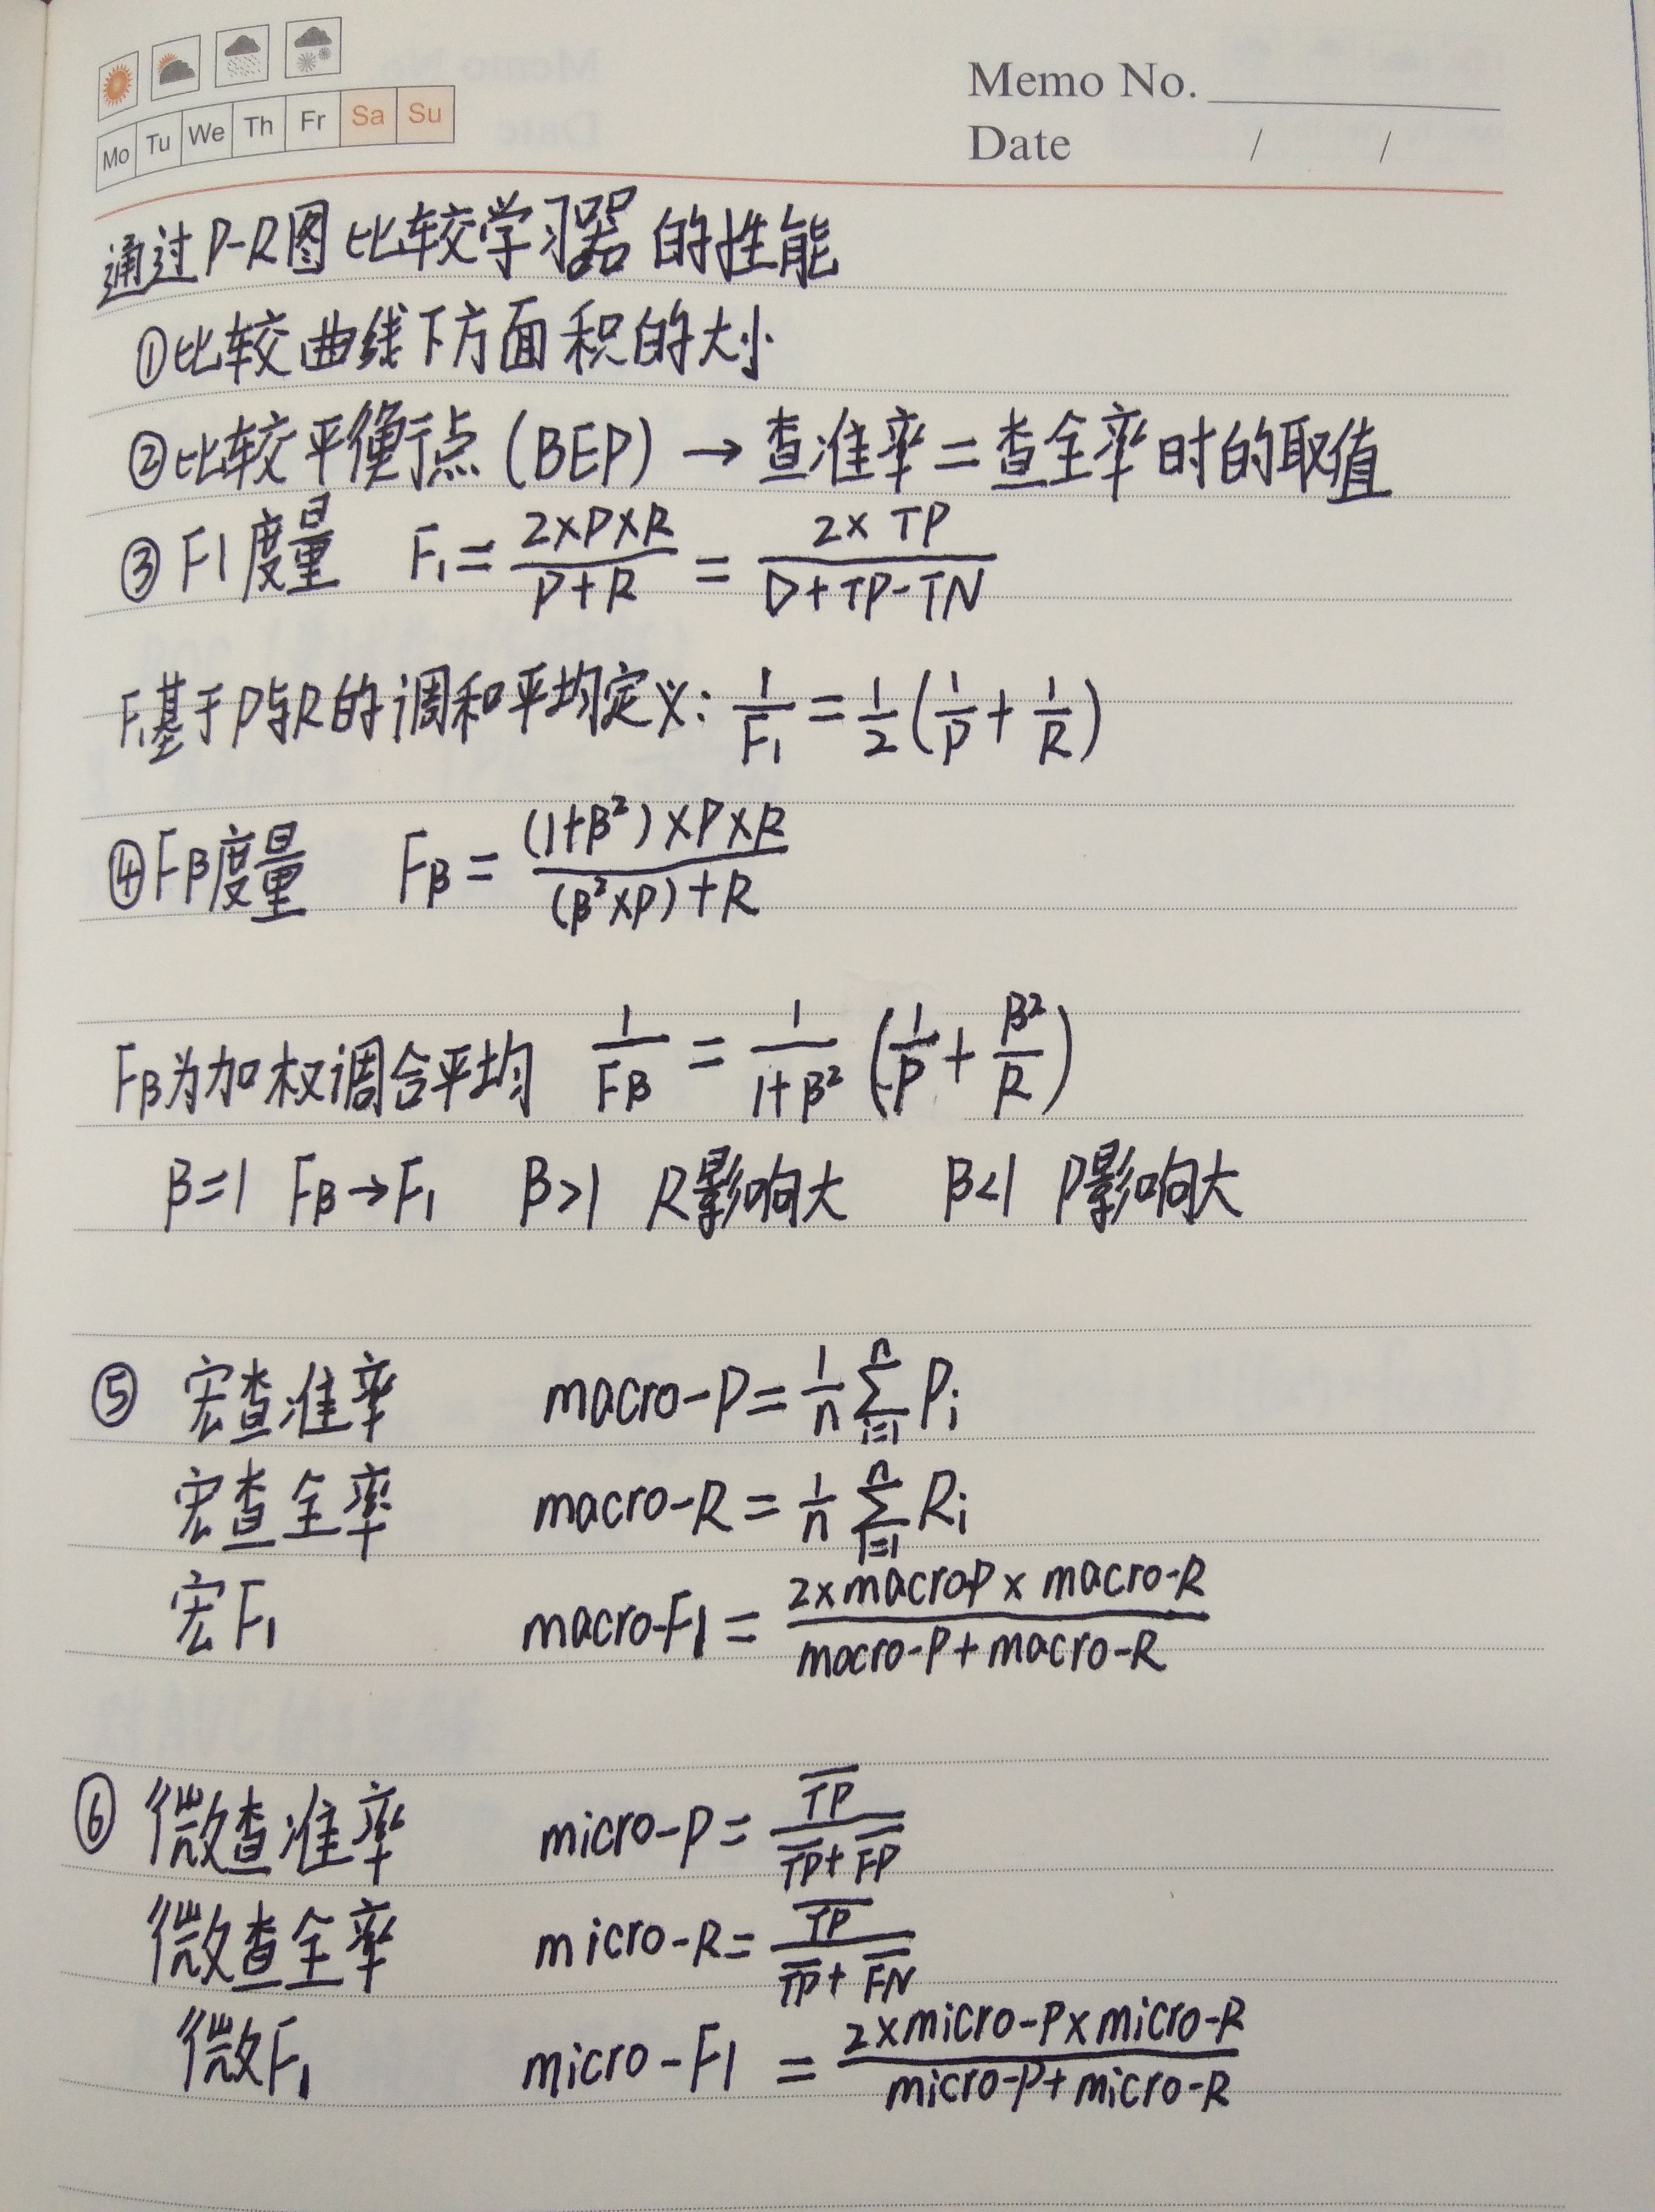 Mo Tu We Th Fr Sa Su
Memo No.
Date / /
通过P-R图比较学习器的性能
①比较曲线下方面积的大小
②比较平衡点(BEP)→查准率=查全率时的取值
③F1度量 F₁=2×P×R/P+R=2×TP/D+TP-TN
F₁基于P与R的调和平均定义:1/F₁=1/2(1/P+1/R)
④Fβ度量 Fβ=(1+β²)×P×R/(β²×P)+R
Fβ为加权调合平均 1/Fβ=1/1+β²(1/P+β²/R)
β=1 Fβ→F₁ β>1 R影响大 β<1 P影响大
⑤ 宏查准率 macro-P=1/n∑ⁿᵢ₌₁Pi
宏查全率 macro-R=1/n∑ⁿᵢ₌₁Ri
宏F₁ macro-F1=2×macroP×macro-R/macro-P+macro-R
⑥ 微查准率 micro-P=T̅P̅/T̅P̅+F̅P̅
微查全率 micro-R=T̅P̅/T̅P̅+F̅N̅
微F₁ micro-F1=2×micro-P×micro-R/micro-P+micro-R